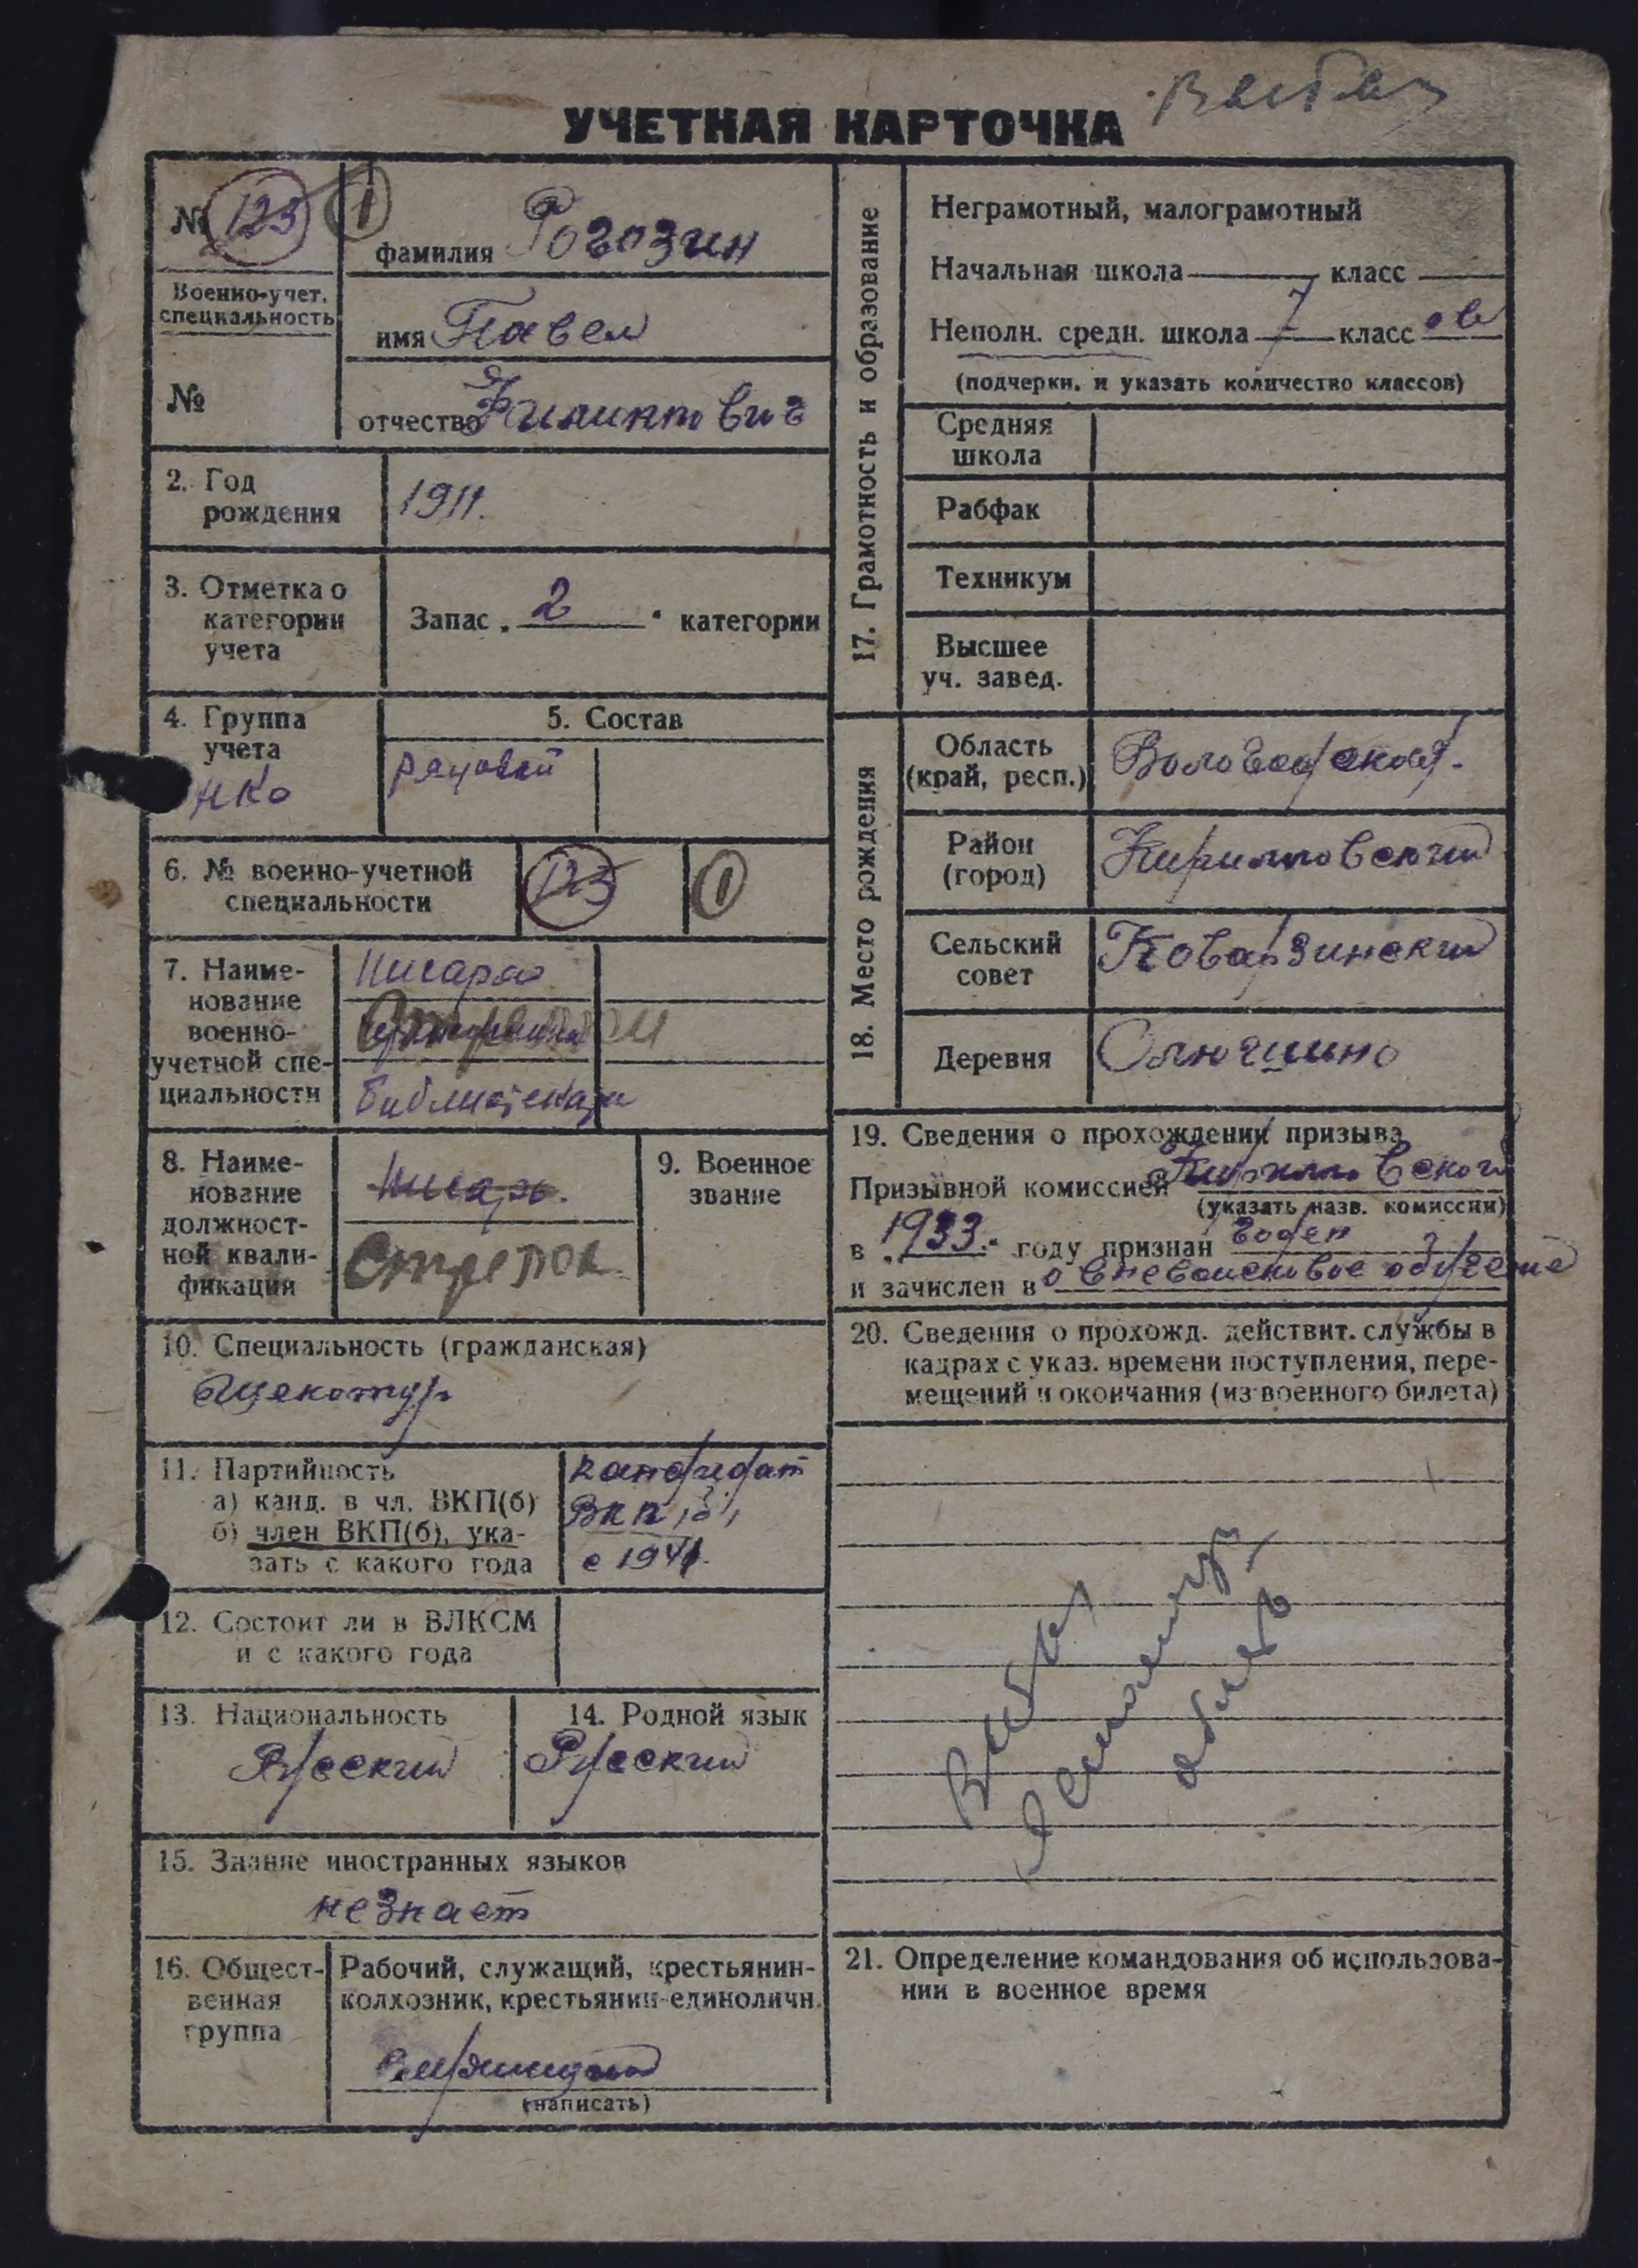 Выбыл
УЧЕТНАЯ КАРТОЧКА
№ 123 1
фамилия Рогозин
Военно-учет.
специальность
имя Павел
№
отчество
2. Год
рождения
1911.
3. Отметка о
категории
учета
Запас „ 2 “ категории
4. Группа
учета
НКО
5. Состав
рядовой
6. № военно-учетной
специальности
123 1
7. Наиме-
нование
военно-
учетной спе-
циальности
Писаря
библиотекари
8. Наиме-
нование
должност-
ной квали-
фикации
Писарь.
Стрелок
9. Военное
звание
10. Специальность (гражданская)
Щекотур
11. Партийность
а) канд. в чл. ВКП(б)
б) член ВКП(б), ука-
зать с какого года
кандидат
ВКП(б)
с 1941.
12. Состоит ли в ВЛКСМ
и с какого года
13. Национальность
Русский
14. Родной язык
Русский
15. Знание иностранных языков
незнает
16. Общест-
венная
группа
Рабочий, служащий, крестьянин-
колхозник, крестьянин-единоличн.
Служащий
(написать)
17. Грамотность и образование
Неграмотный, малограмотный
Начальная школа класс
Неполн. средн. школа 7 класс ов
(подчеркн. и указать количество классов)
Средняя
школа
Рабфак
Техникум
Высшее
уч. завед.
18. Место рождения
Область
(край, респ.)
Вологодской.
Район
(город)
Кирилловский
Сельский
совет
Коварзинский
Деревня
Олюшино
19. Сведения о прохождении призыва
Призывной комиссией Кирилловской
(указать назв. комиссии)
в „1933.“ году признан годен
и зачислен в о вневойсковое обучение
20. Сведения о прохожд. действит. службы в
кадрах с указ. времени поступления, пере-
мещений и окончания (из военного билета)
Выбыл
область
21. Определение командования об использова-
нии в военное время